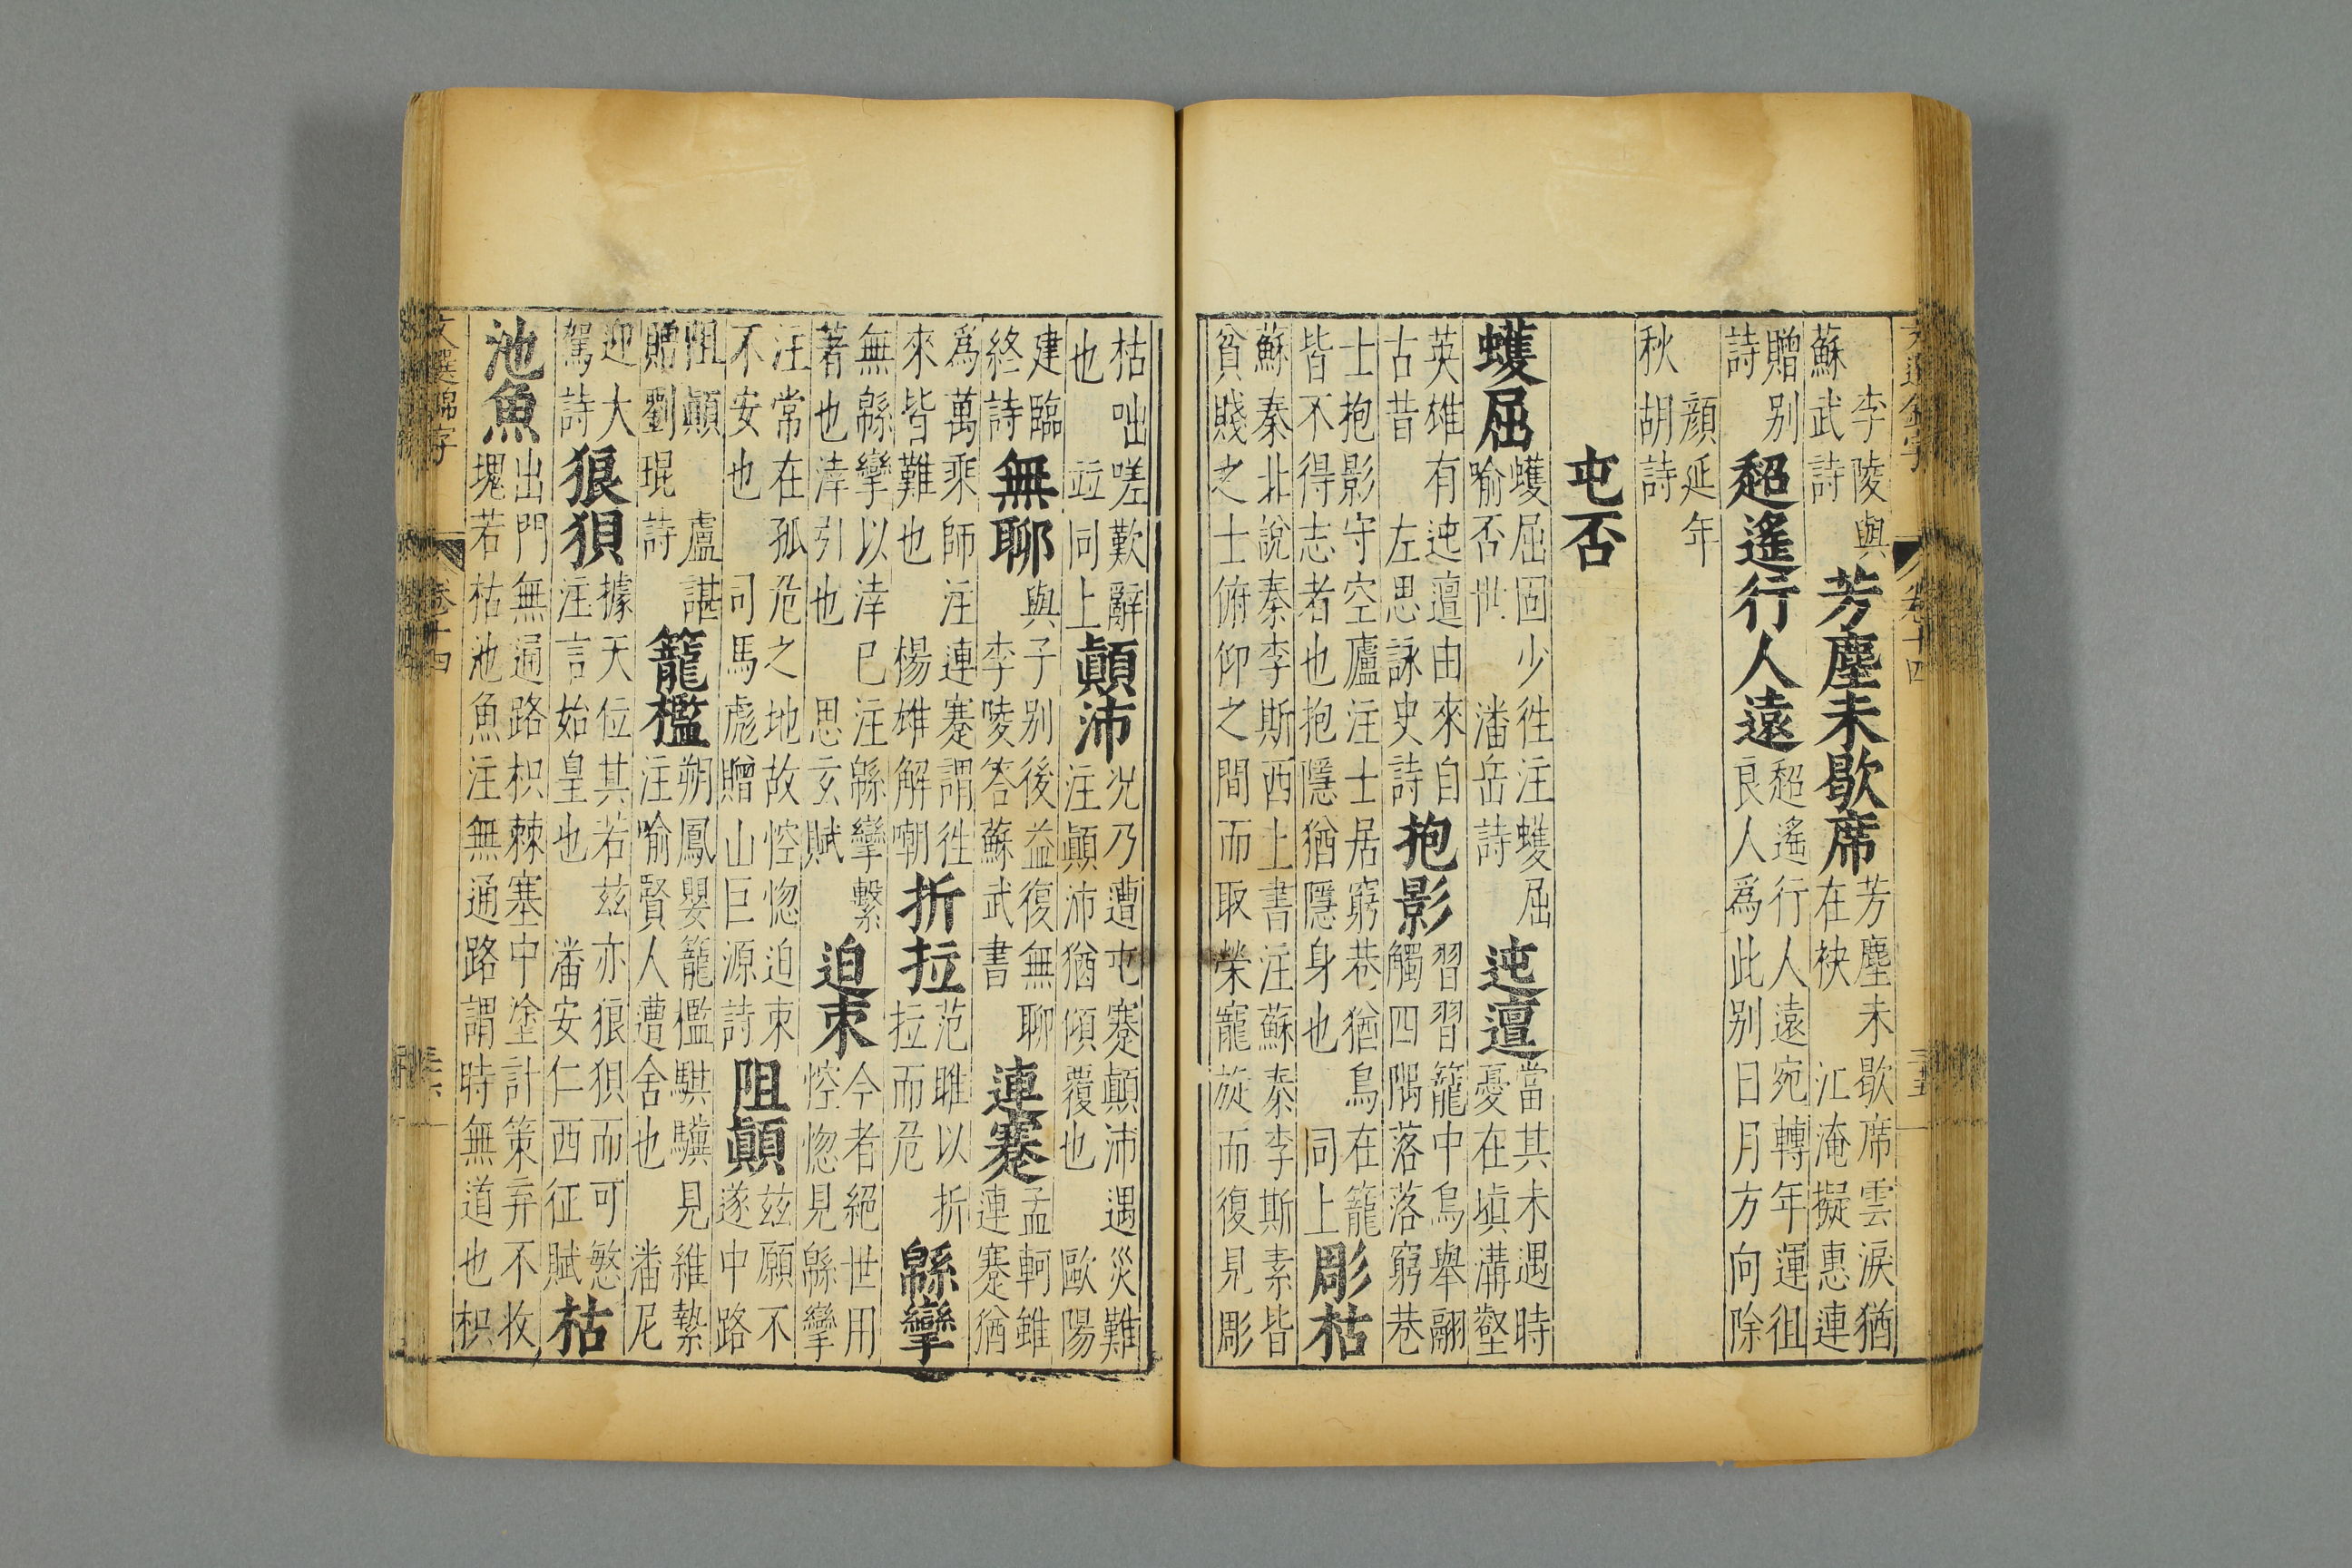 李陵與
蘇武詩
芳塵未歇席
芳塵未歇席雲淚猶
在袂　江淹擬惠連
贈別
詩
超遙行人遠
超遙行人遠宛轉年運徂
良人爲此別日月方向除
顔延年
秋胡詩
屯否
蠖屈
蠖屈固少徃注蠖屈
喻否世　潘岳詩
迍邅
當其未遇時
憂在塡溝壑
英雄有迍邅由來自
古昔　左思詠史詩
抱影
習習籠中鳥舉翮
觸四隅落落窮巷
士抱影守空廬注士居窮巷猶鳥在籠
皆不得志者也抱隱猶隱身也　同上
彫枯
蘇秦北說秦李斯西上書注蘇秦李斯素皆
貧賤之士俯仰之間而取榮寵旋而復見彫
枯咄嗟歎辭
也　竝同上
顚沛
况乃遭屯蹇顚沛遇災難
注顚沛猶傾覆也　歐陽
建臨
終詩
無聊
與子別後益復無聊
李陵答蘇武書
連蹇
孟軻雖
連蹇猶
爲萬乘師注連蹇謂徃
來皆難也　楊雄解嘲
折拉
范睢以折
拉而危
緜攣
無緜攣以涬巳注緜攣繫
著也涬引也　思玄賦
迫束
今者絕世用
悾惚見緜攣
注常在孤危之地故悾惚迫束
不安也　司馬彪贈山巨源詩
阻顚
茲願不
遂中路
阻顚　盧諶
贈劉琨詩
籠檻
朔鳳嬰籠檻騏驥見維縶
注喻賢人遭舍也　潘尼
迎大
駕詩
狼狽
據天位其若茲亦狼狽而可慜
注言始皇也　潘安仁西征賦
枯
池魚
出門無通路枳棘塞中塗計策弃不收
塊若枯池魚注無通路謂時無道也枳
文選錦字
卷十四